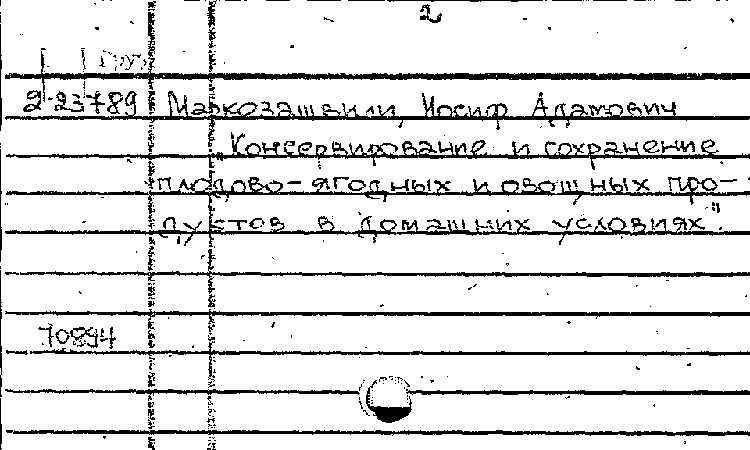 2
Груз
2-23789 Маркозашвили, Иосиф Адамович
„Консервирование и сохранение
плодово-ягодных и овощных про-
дуктов в домашних условиях".
70894